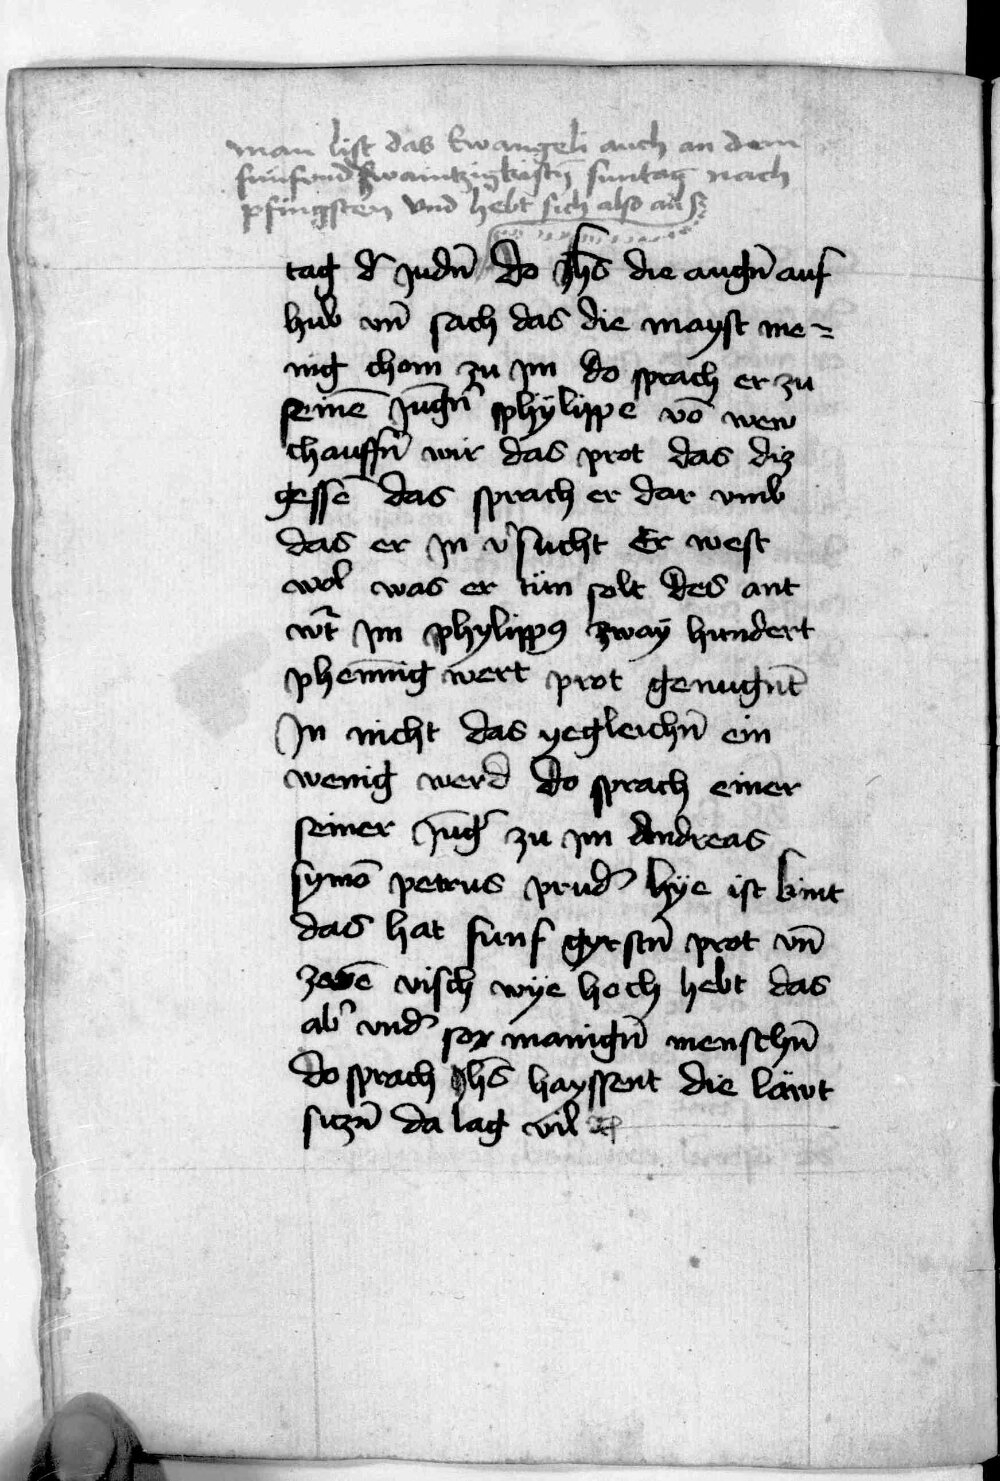 man list das Ewangeli auch an dem
funfundzwaintzigkistn̄ suntag nach
pfingsten Vnd hebt sich also auß
tag d̓ Judn̄ do Jhs̄ die augn̄ auf
hub vn̄ sach das die mayst me=
nig chom zu Jm do sprach er zu
seinē Jūgn̓ phÿlippe vō wew
chauffn̄ wir das prot das diz
gessē das sprach er dar vmb
das er Jn v̓sucht Er west
wol was er tün solt Des ant
wt̓ Jm phylippꝰ zway hundert
phennīg wert prot genugn̄t
Jn nicht das yegleichn̄ ein
wenig werd Do sprach einer
seiner Jūg̓ zu Jm Andreas
symō petrus prud̓ hÿe ist kint
das hat funf gyrstn̄ prot vn̄
zewē visch wÿe hoch hebt das
ab̓ vnd̓ sor manign̄ menschn̄
do sprach Jhs̄ hayssent die läwt
siczn̄ da lag vil